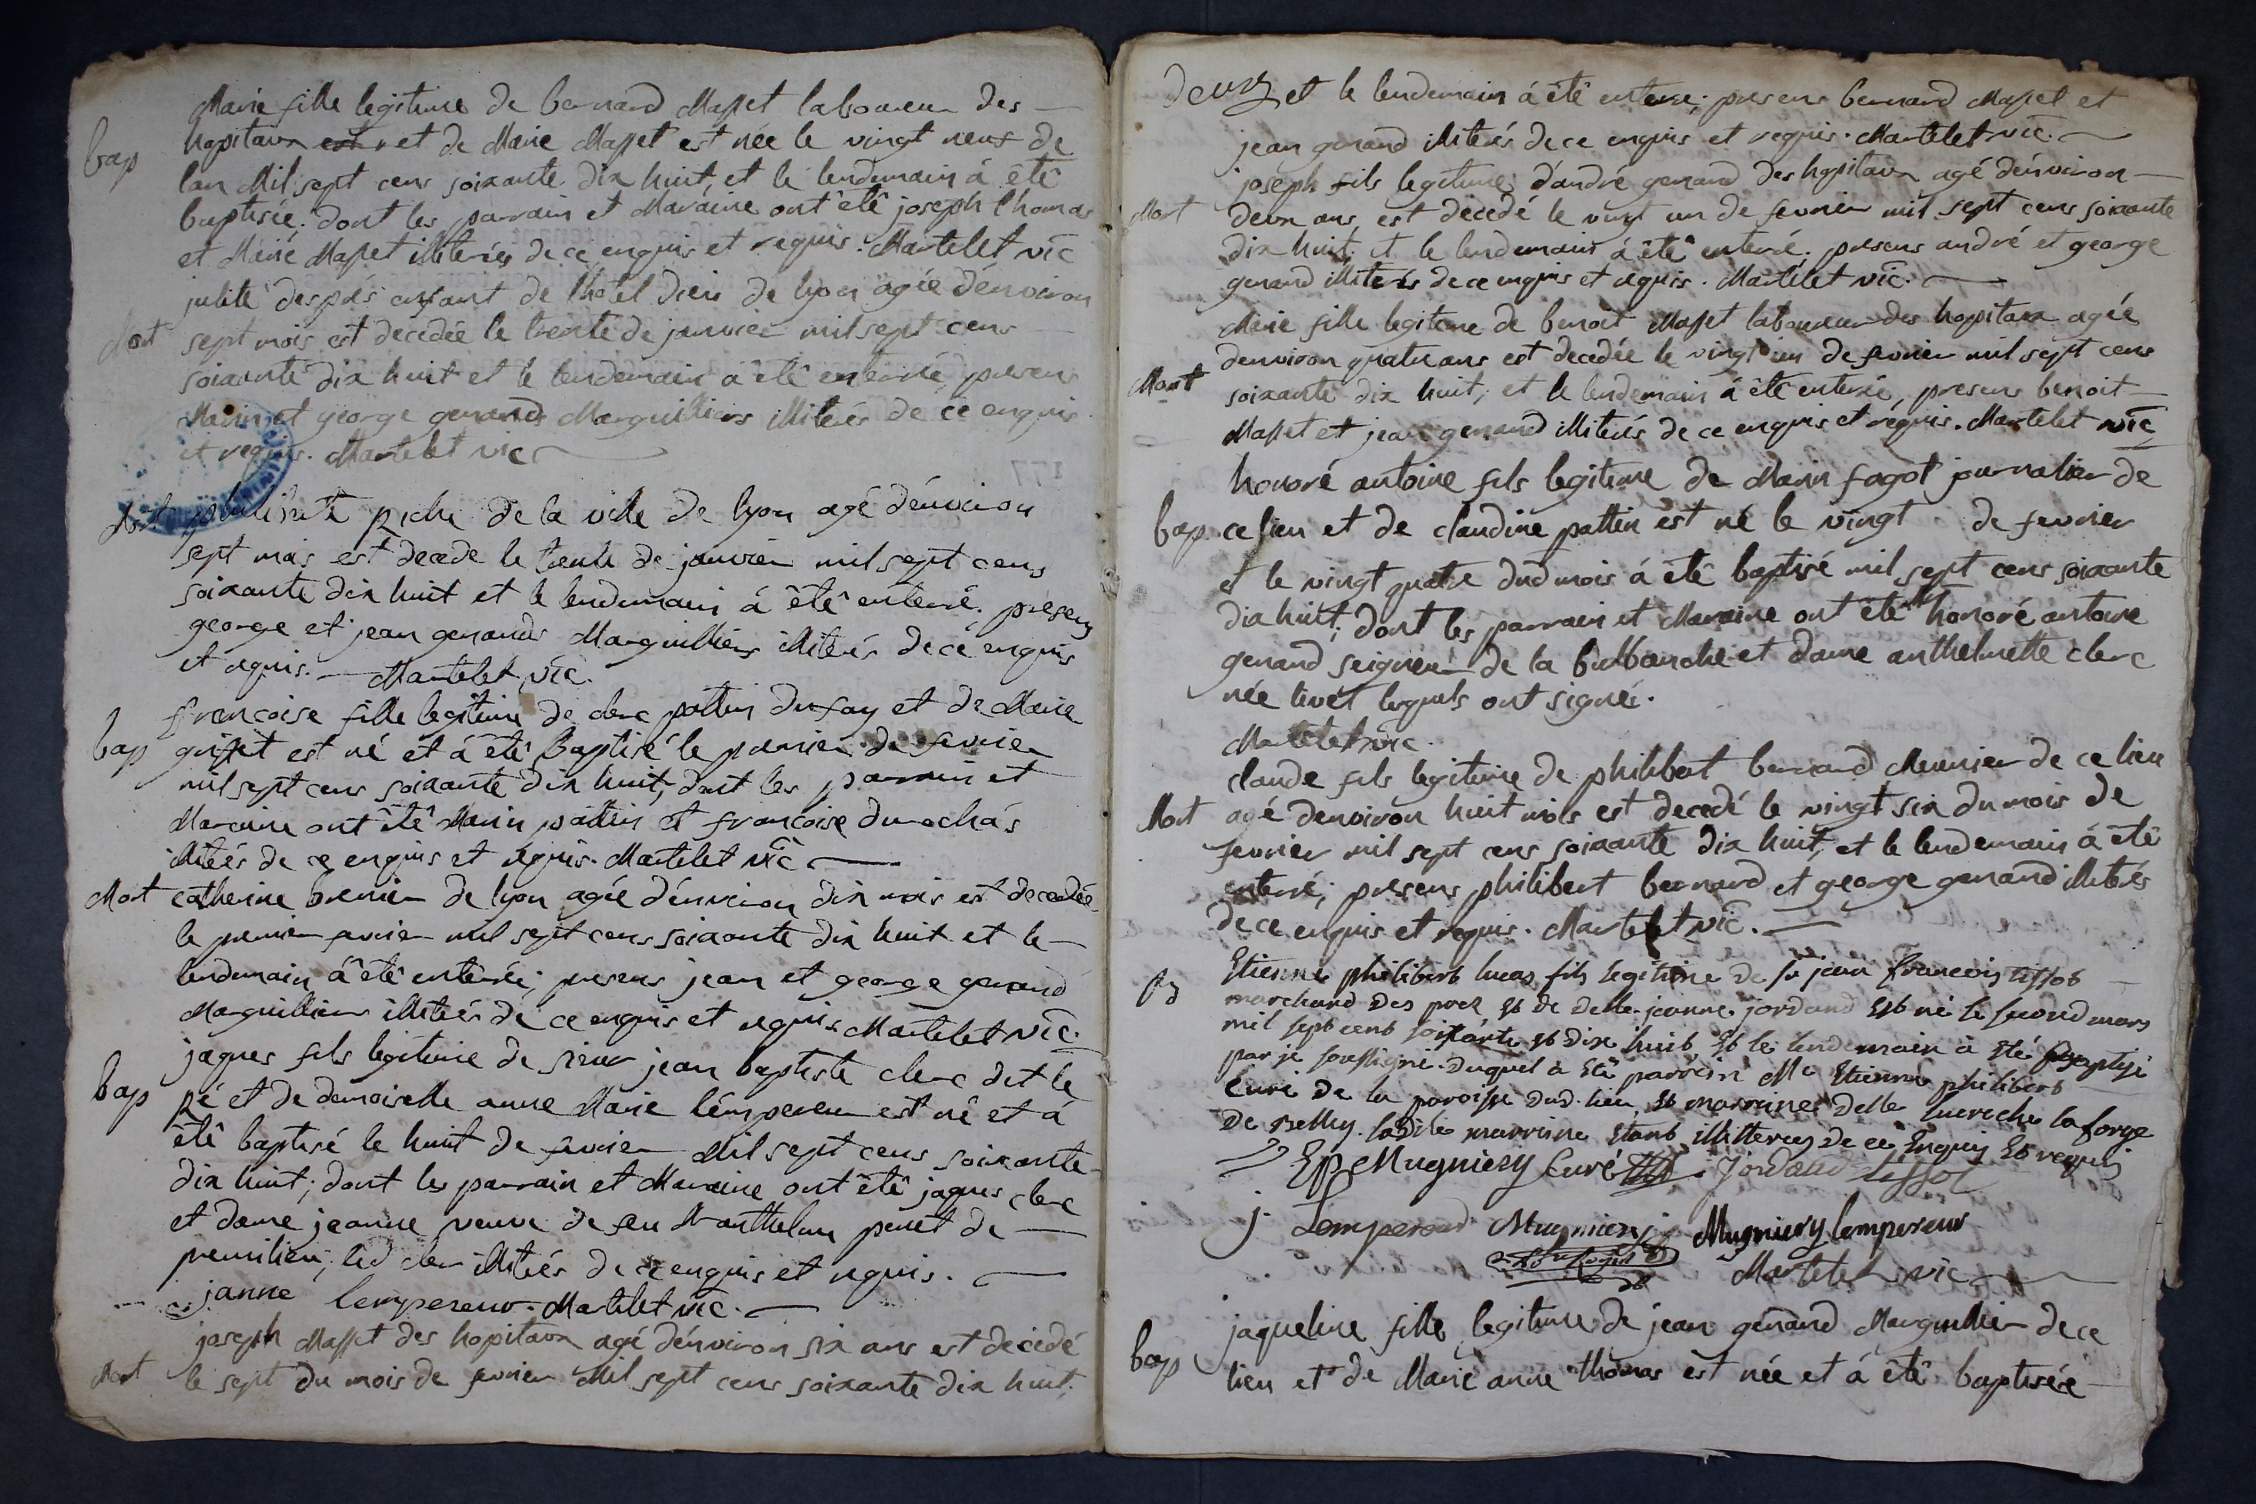 Marie fille legitime de bernard Masset laboureur des
bap hopitaux est et de Marie Masset est née le vingt neuf de
lan Mil sept cens soixante dix huit, et le lendemain á êtê
baptisée. dont les parrain et Maraine ont étê joseph thomas
et Marie Masset illiterés de ce enquis et requis. Martelet vic
julite des prés enfant de lhotel dieu de lyon agée dénviron
Mort sept mois est decedée le trente de janvier mil sept cens
soixante dix huit et le lendemain á êtê enterrée, presens
Marin et george genands Marguilliers illiterés de ce enquis
et requis. Martelet vic
Mort piche de la ville de lyon agé dénviron
sept mois est decede le trente de janvier mil sept cens
soixante dix huit et le lendemain á êtê enterré; presens
george et jean genands Marguilliers illiterés de ce enquis
et requis. Martelet vic.
francoise fille legitime de clerc pattin du fay et de Marie
bap guiffet est né et á êtê baptisé le premier de fevrier
mil sept cens soixante dix huit, dont les parrain et
Maraine ont êtê Marin pattin et francoise durochás
illiterés de ce enquis et requis. Martelet vic
Mort catherine brenier de lyon agée dénviron dix mois est decedée
le premier fevrier mil sept cens soixante dix huit et le
lendemain á êtê enterrée; presens jean et george genand
Marguilliers illiterés de ce enquis et requis Martelet vic.
jaques fils legitime de sieur jean baptiste clerc dit le
bap pé et de demoiselle anne Marie lémpereur est né et á
êtê baptisé le huit de fevrier Mil sept cens soixante
dix huit; dont les parrain et Maraine ont êtê jaques clerc
et dame jeanne veuve de feu Mr anthelme penet de
premilieu; led clerc illiterés de ce enquis et requis.
janne lempereur. Martelet vic.
joseph Masset des hopitaux agé dénviron six ans est decedé
Mort le sept du mois de fevrier Mil sept cens soixante dix huit.
deux et le lendemain á êtê enterré; presens bernard Masset et
jean genand illiterés de ce enquis et requis. Martelet vic.
joseph fils legitime d'andré genand des hopitaux agé dénviron
Mort deux ans est decedé le vingt un de fevrier mil sept cens soixante
dix huit, et le lendemain á êtê enterré; presens andré et george
genand illiterés de ce enquis et requis. Martelet vic.
Marie fille legitime de benoit Masset laboureur des hopitaux agée
denviron quatre ans est decedée le vingt un de fevrier mil sept cens
Mort soixante dix huit, et le lendemain á êtê enterrée, presens benoit
Masset et jean genand illiterés de ce enquis et réquis. Martelet vic
honoré antoine fils legitime de Marin fagot journalier de
bap ce lieu et de claudine pattin est né le vingt de fevrier
et le vingt quatre dud mois á êtê baptisé mil sept cens soixante
dix huit; dont les parrain et Maraine ont êtê Mr honoré antoine
genand seigneur de la et dame anthelmette clerc
née livet lesquels ont signé.
Martelet vic.
claude fils legitime de philibert bernard Meunier de ce lieu
Mort agé denviron huit mois est decedé le vingt six du mois de
fevrier mil sept cens soixante dix huit, et le lendemain á êtê
enterré; presens philibert bernard et george genand illiterés
de ce enquis et requis. Martelet vic.
Etienne philibert lucas fils legitime de sr jean francois tissot
marchand des prez, et de delle jeanne jordand est né le second mars
mil sept cent soixante et dix huit, et le lendemain à été baptisé
par je soussigné. duquel à eté parrein Mre Etienne philibert
curé de la paroisse dud. lieu, et marraine delle lucreche laforge
de belley. ladite marraine etant illitteres de ce Enquis Et requis
E p Mugniery Curé Jordand tissot
j. Lempereur Mugnier Mugniery lempereur
Martelet vic
jaqueline fille legitime de jean genand Marguillier de ce
bap lieu et de Marie anne thomas est née et á êtê baptisée